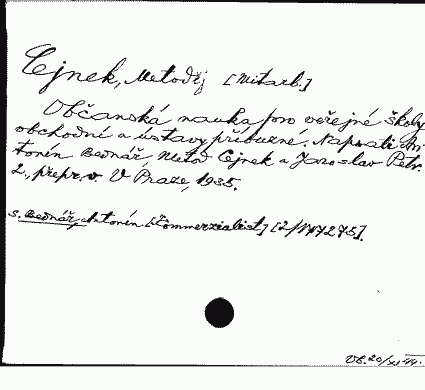 Cejnek, Metoděj [Mitarb.]
Občanská nauka pro veřejné školy
obchodní a ústavy příbuzné. Napsali An-
tonín Bednář, Metod Cejnek a Jaroslav Petr.
2. přepr. v. V Praze, 1935.
s. Bednář, Antonín [Kommerzialist] [2/197275].
VB. 20/XI 44.